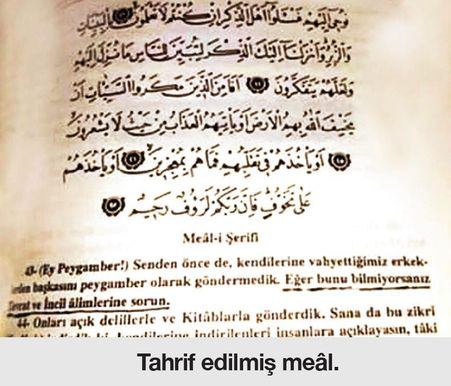 نُوحِي إِلَيْهِمْ فَسْـَٔلُوا أَهْلَ الذِّكْرِ إِنْ كُنْتُمْ لَا تَعْلَمُونَ
وَالزُّبُرِ وَأَنْزَلْنَا إِلَيْكَ الذِّكْرَ لِتُبَيِّنَ لِلنَّاسِ مَا نُزِّلَ إِلَيْهِمْ
وَلَعَلَّهُمْ يَتَفَكَّرُونَ ﴿٤٤﴾ أَفَأَمِنَ الَّذِينَ مَكَرُوا السَّيِّئَاتِ أَنْ
يَخْسِفَ اللّٰهُ بِهِمُ الْأَرْضَ أَوْ يَأْتِيَهُمُ الْعَذَابُ مِنْ حَيْثُ لَا يَشْعُرُونَ
﴿٤٥﴾ أَوْ يَأْخُذَهُمْ فِي تَقَلُّبِهِمْ فَمَا هُمْ بِمُعْجِزِينَ ﴿٤٦﴾ أَوْ يَأْخُذَهُمْ
عَلَى تَخَوُّفٍ فَإِنَّ رَبَّكُمْ لَرَؤُفٌ رَحِيمٌ ﴿٤٧﴾
Meâl-i Şerifi
43- (Ey Peygamber!) Senden önce de, kendilerine vahyettiğimiz erkek-
lerden başkasını peygamber olarak göndermedik. Eğer bunu bilmiyorsanız
Tevrat ve İncil âlimlerine sorun.
44- Onları açık delillerle ve Kitâblarla gönderdik. Sana da bu zikri
kendilerine indirilenleri insanlara açıklayasın, tâki
Tahrif edilmiş meâl.